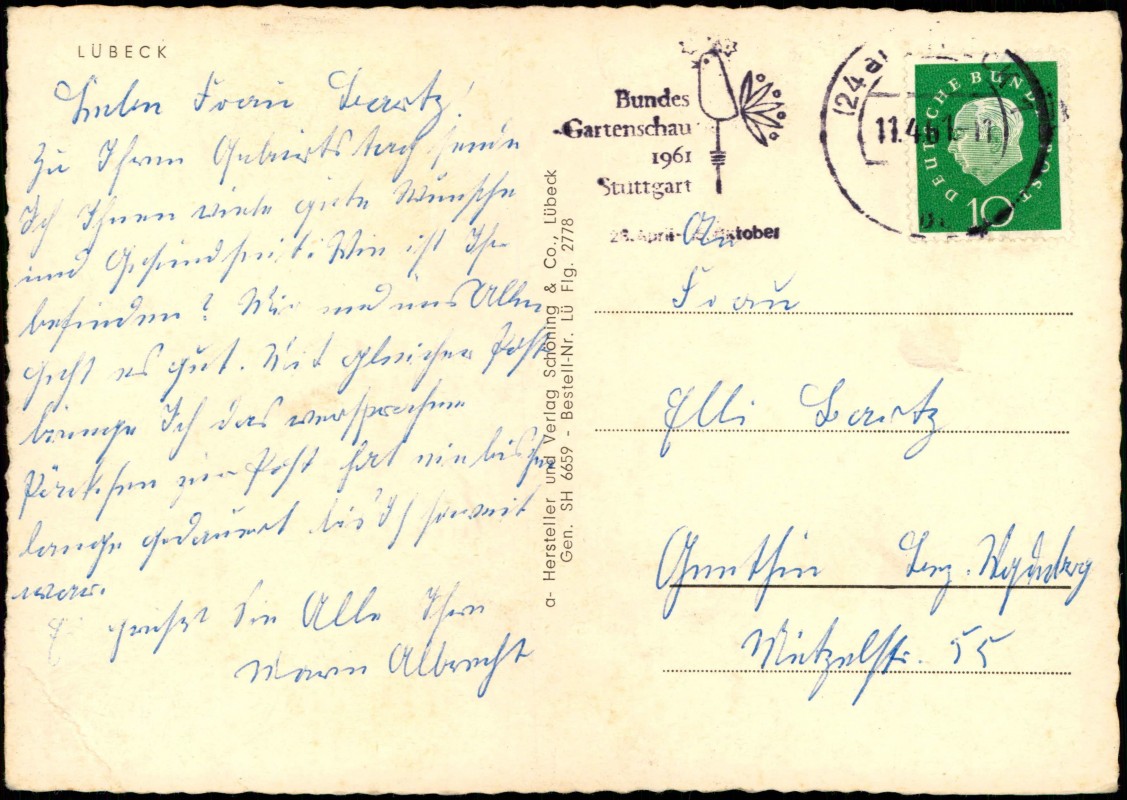 LÜBECK
Liebe Frau Bartz!
Zu Ihrem Geburtstach sende
Ich Ihnen viele gute Wünsche
und Gesundheit. Wie ist Ihr
befinden? Mir und uns Allen
geht es gut. Mit gleicher Post
bringe Ich das versprochene
Päckchen zur Post hat ein bischen
lange gedauert bis Ich soweit
war.
Es grüßt Sie Alle Ihre
Albrecht
a- Hersteller und Verlag Schöning & Co., Lübeck
Gen. SH 6659 - Bestell-Nr. Lü Flg. 2778
Bundes
Gartenschau
1961
Stuttgart
April- Oktober
(24a)
11.4.61-11
DEUTSCHE BUNDESPOST
10
An
Frau
Elli Bartz
Genthin Bez. Magdeburg
55